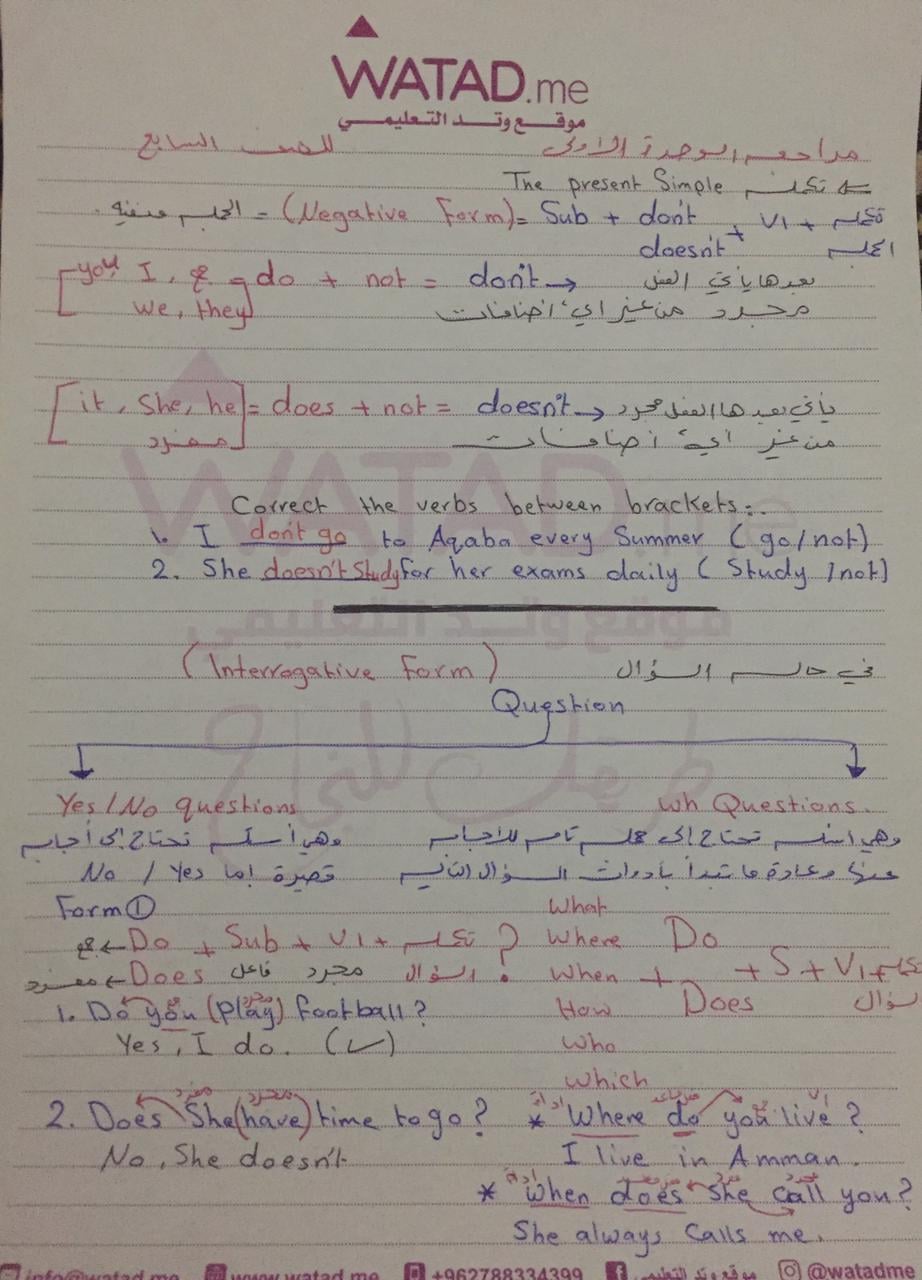 WATAD.me
موقع وتد التعليمي
مراجعة الوحدة الأولى للصف السابع
تكملة The present Simple
الجملة منفية = (Negative Form) = Sub + don't / doesn't + V1 + تكملة الجملة
you, I, we, they do + not = don't → بعدها يأتي الفعل
مجرد من غير أي اضافات
[it, She, he] = does + not = doesn't → يأتي بعدها الفعل مجرد
مفرد من غير أية اضافات
Correct the verbs between brackets:.
1. I don't go to Aqaba every Summer ( go/not)
2. She doesn't Study for her exams daily ( Study /not)
موقع وتد التعليمي
(Interrogative Form) في حالة السؤال
Question
طريقك للنجاح
Yes/No questions
وهي أسئلة تحتاج إلى أجابة
قصيرة إما No / Yes
Form ①
جمع ← Do + Sub + V1 + تكملة ?
مفرد ← Does فاعل مجرد السؤال
1. Do you (play) football?
جمع مجرد
Yes, I do. (✓)
2. Does She (have) time to go?
مفرد مجرد
No, She doesn't
wh Questions.
وهي اسئلة تحتاج إلى جملة تامة للأجابة
عنها وعادة ما تبدأ بأدوات السؤال التالية
What
Where Do
When + + S + V1 + تكملة
How Does سؤال
Who
Which
* Where do you live?
أداة
I live in Amman.
* When does She call you?
أداة
She always Calls me.
info@watad.me www.watad.me +962788334399 موقع وتد التعليمي @watadme